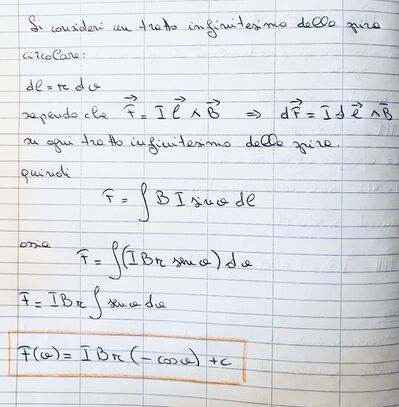 Si consideri un tratto infinitesimo della spira
circolare:
dl = r dθ
sapendo che F⃗ = I l⃗ ∧ B⃗ ⇒ dF⃗ = I d l⃗ ∧ B⃗
su ogni tratto infinitesimo della spira.
quindi
F = ∫ B I sinθ dl
ossia F = ∫ (I B r senθ) dθ
F = I B r ∫ senθ dθ
F(θ) = I B r (- cosθ) + c